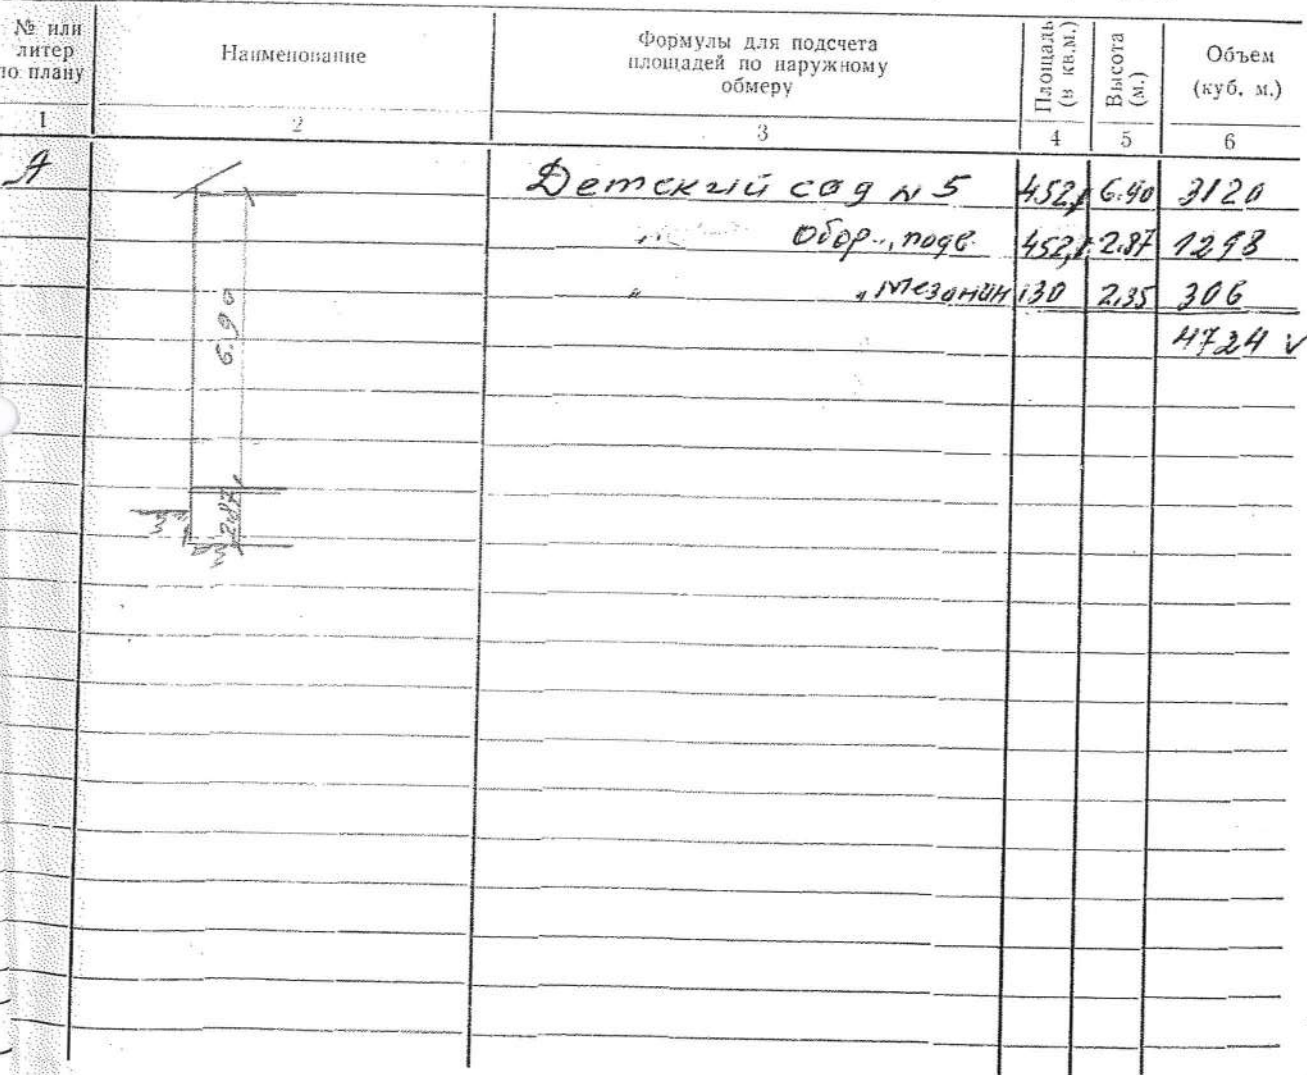 № или литер по плану
Наименование
Формулы для подсчета площадей по наружному обмеру
Площадь (в кв.м.)
Высота (м.)
Объем (куб. м.)
1 2 3 4 5 6
А Детский сад N 5 452,1 6.90 3120
" Обор., подв. 452,1 2.87 1298
" " Мезанин 130 2,35 306
4724 v
6.90
2.87